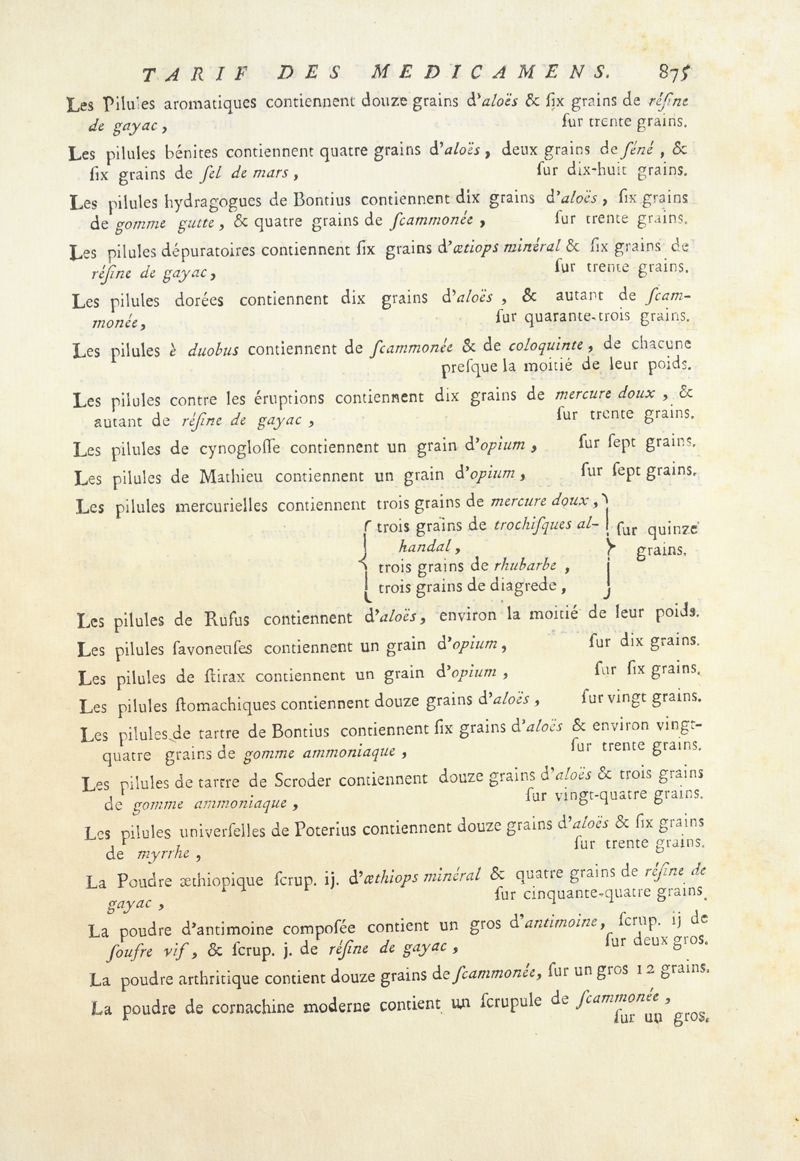 TARIF DES MEDICAMENS. 875
Les Pilules aromatiques contiennent douze grains d'aloës & ſix grains de réſine
de gayac, ſur trente grains.
Les pilules bénites contiennent quatre grains d'aloës, deux grains de ſéné, &
ſix grains de ſel de mars, ſur dix-huit grains.
Les pilules hydragogues de Bontius contiennent dix grains d'aloës, ſix grains
de gomme gutte, & quatre grains de ſcammonée, ſur trente grains.
Les pilules dépuratoires contiennent ſix grains d'ætiops minéral & ſix grains de
réſine de gayac, ſur trente grains.
Les pilules dorées contiennent dix grains d'aloës, & autant de ſcam-
monée, ſur quarante-trois grains.
Les pilules è duobus contiennent de ſcammonée & de coloquinte, de chacune
preſque la moitié de leur poids.
Les pilules contre les éruptions contiennent dix grains de mercure doux, &
autant de réſine de gayac, ſur trente grains.
Les pilules de cynogloſſe contiennent un grain d'opium, ſur ſept grains.
Les pilules de Mathieu contiennent un grain d'opium, ſur ſept grains.
Les pilules mercurielles contiennent trois grains de mercure doux,
trois grains de trochiſques al- ſur quinze
handal, grains.
trois grains de rhubarbe,
trois grains de diagrede,
Les pilules de Rufus contiennent d'aloës, environ la moitié de leur poids.
Les pilules ſavoneuſes contiennent un grain d'opium, ſur dix grains.
Les pilules de ſtirax contiennent un grain d'opium, ſur ſix grains.
Les pilules ſtomachiques contiennent douze grains d'aloës, ſur vingt grains.
Les pilules de tartre de Bontius contiennent ſix grains d'aloës & environ vingt-
quatre grains de gomme ammoniaque, ſur trente grains.
Les pilules de tartre de Scroder contiennent douze grains d'aloës & trois grains
de gomme ammoniaque, ſur vingt-quatre grains.
Les pilules univerſelles de Poterius contiennent douze grains d'aloës & ſix grains
de myrrhe, ſur trente grains.
La Poudre æthiopique ſcrup. ij. d'æthiops minéral & quatre grains de réſine de
gayac, ſur cinquante-quatre grains.
La poudre d'antimoine compoſée contient un gros d'antimoine, ſcrup. ij de
ſoufre vif, & ſcrup. j. de réſine de gayac, ſur deux gros.
La poudre arthritique contient douze grains de ſcammonée, ſur un gros 12 grains.
La poudre de cornachine moderne contient un ſcrupule de ſcammonée,
ſur un gros.